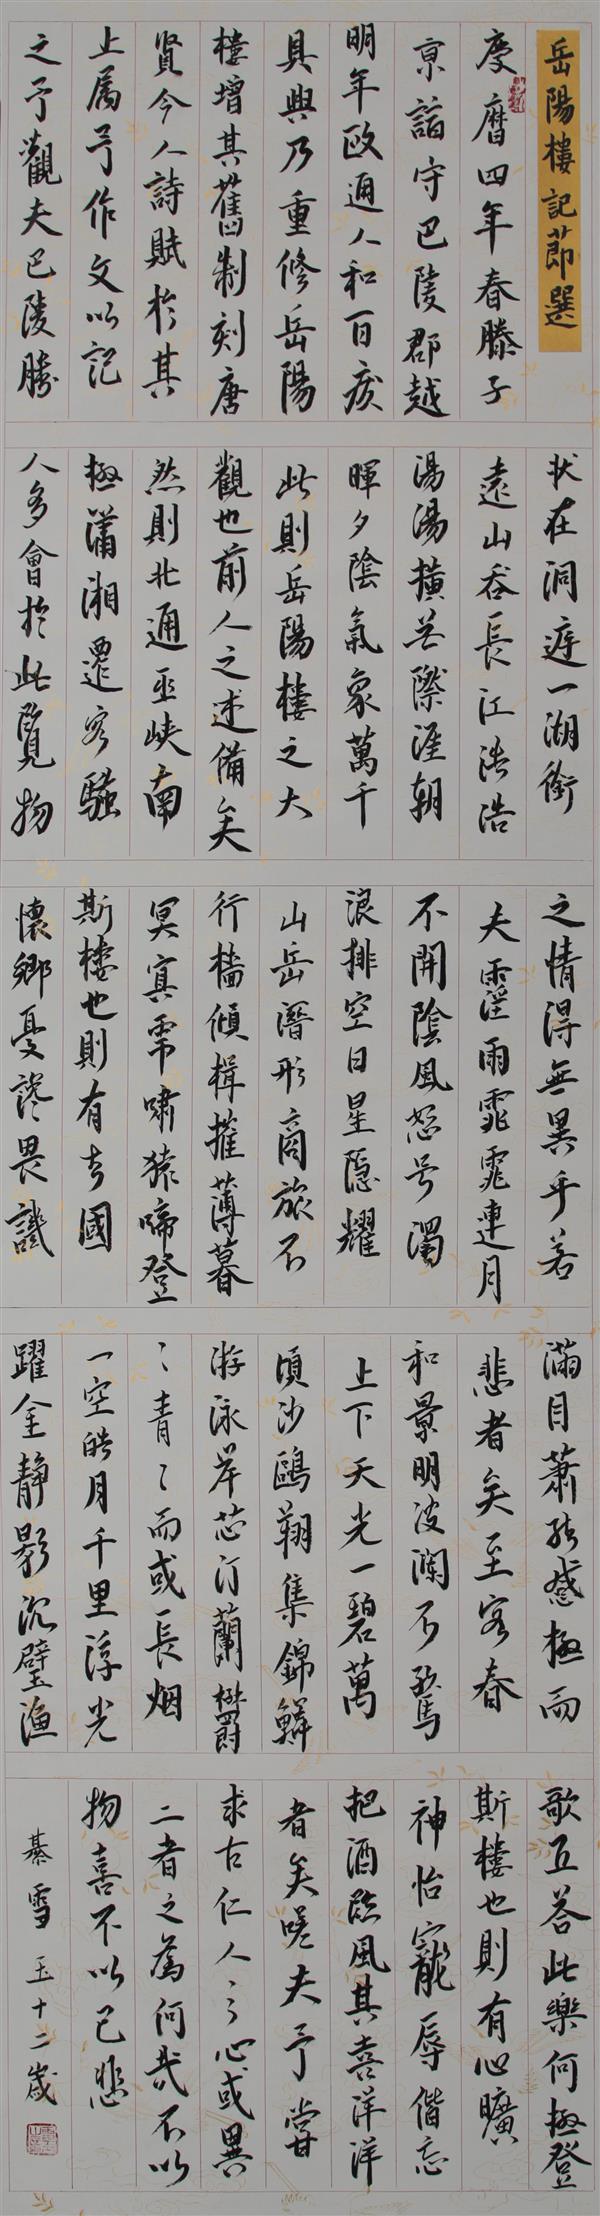 岳陽樓記節選
慶曆四年春滕子
京謫守巴陵郡越
明年政通人和百廢
具興乃重修岳陽
樓增其舊制刻唐
賢今人詩賦於其
上属予作文以記
之予觀夫巴陵勝
狀在洞庭一湖銜
遠山吞長江浩浩
湯湯橫無際涯朝
暉夕陰氣象萬千
此則岳陽樓之大
觀也前人之述備矣
然則北通巫峽南
極瀟湘遷客騷
人多會於此覽物
之情得無異乎若
夫霪雨霏霏連月
不開陰風怒号濁
浪排空日星隱耀
山岳潛形商旅不
行檣傾楫摧薄暮
冥冥虎嘯猿啼登
斯樓也則有去國
懷鄉憂讒畏譏
滿目蕭然感極而
悲者矣至客春
和景明波瀾不驚
上下天光一碧萬
頃沙鷗翔集錦鱗
游泳岸芷汀蘭欝
〻青〻而或長烟
一空皓月千里浮光
躍金靜影沉璧漁
歌互答此樂何極登
斯樓也則有心曠
神怡寵辱偕忘
把酒臨風其喜洋洋
者矣嗟夫予嘗
求古仁人之心或異
二者之為何哉不以
物喜不以己悲
綦雪玉十二歲